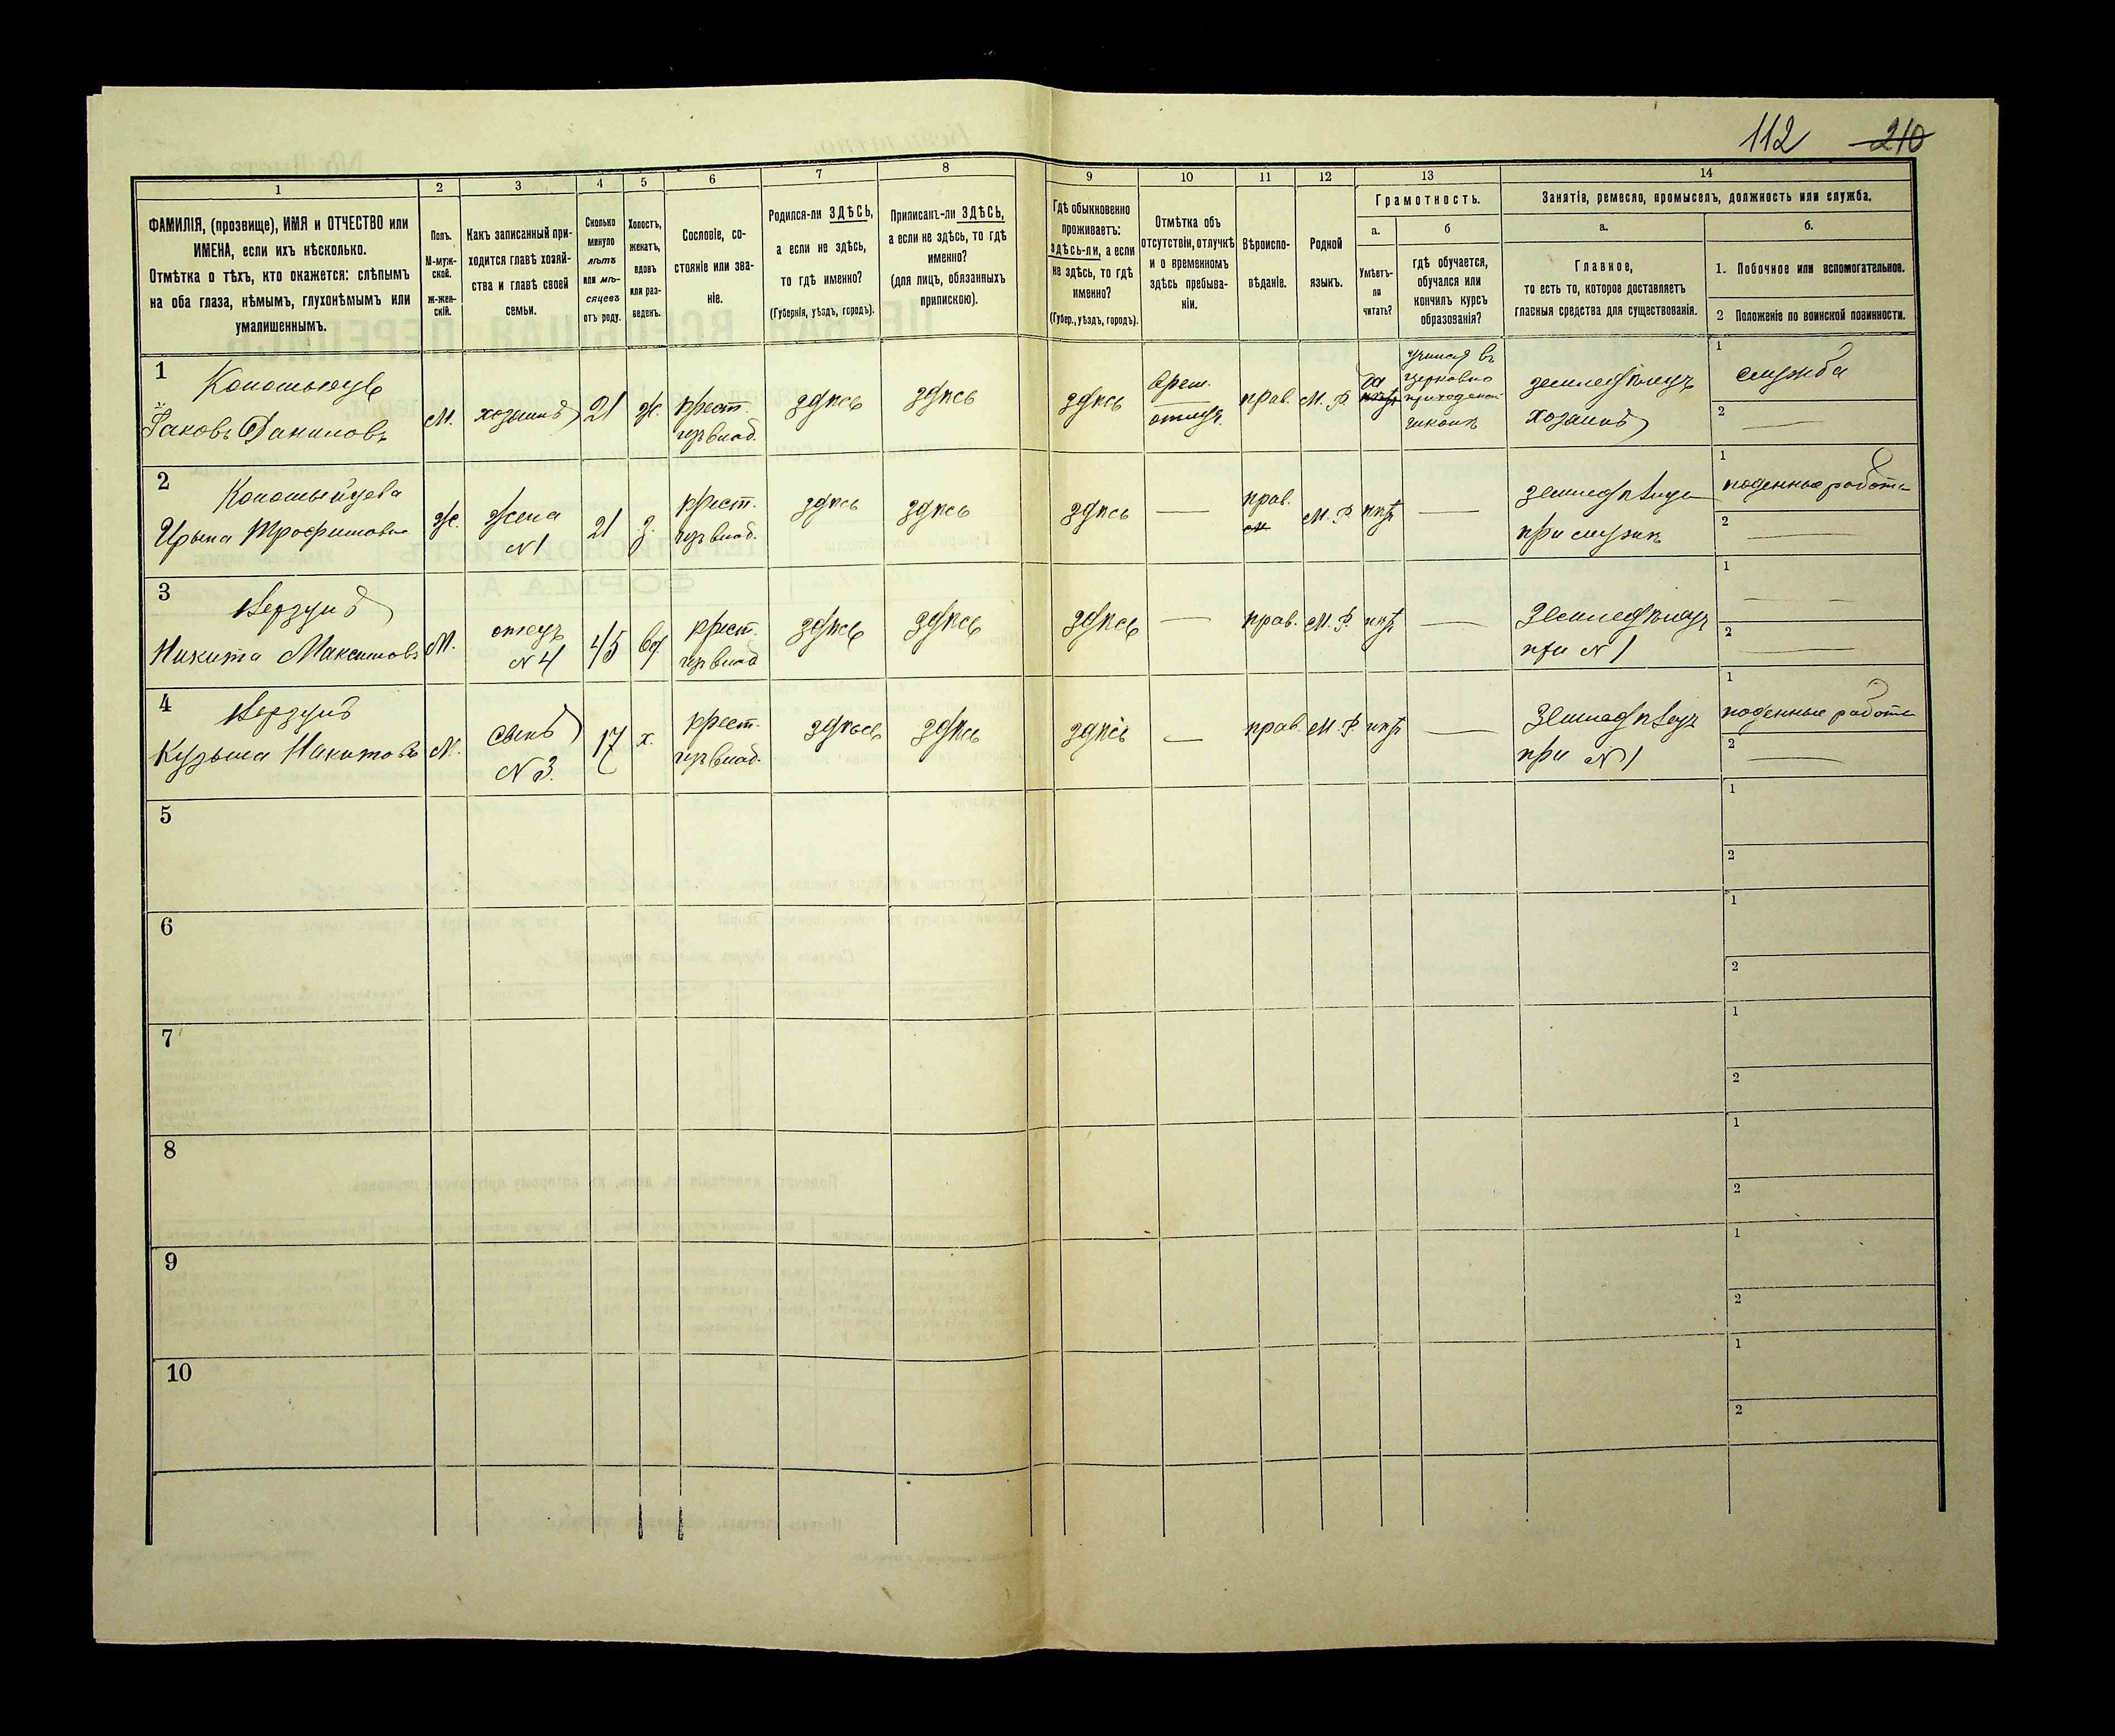 112 210
1 2 3 4 5 6 7 8 9 10 11 12 13 14
ФАМИЛІЯ, (прозвище), ИМЯ и ОТЧЕСТВО или
ИМЕНА, если ихъ нѣсколько.
Отмѣтка о тѣхъ, кто окажется: слѣпымъ
на оба глаза, нѣмымъ, глухонѣмымъ или
умалишеннымъ.
Полъ.
М-муж-
ской.
ж-жен-
скій.
Какъ записанный при-
ходится главѣ хозяй-
ства и главѣ своей
семьи.
Сколько
минуло
лѣтъ
или мѣ-
сяцевъ
отъ роду.
Холостъ,
женатъ,
вдовъ
или раз-
веденъ.
Сословіе, со-
стояніе или зва-
ніе.
Родился-ли ЗДѢСЬ,
а если не здѣсь,
то гдѣ именно?
(Губернія, уѣздъ, городъ).
Приписанъ-ли ЗДѢСЬ,
а если не здѣсь, то гдѣ
именно?
(для лицъ, обязанныхъ
припискою).
Гдѣ обыкновенно
проживаетъ:
здѣсь-ли, а если
не здѣсь, то гдѣ
именно?
(Губер., уѣздъ, городъ).
Отмѣтка объ
отсутствіи, отлучкѣ
и о временномъ
здѣсь пребыва-
ніи.
Вѣроиспо-
вѣданіе.
Родной
языкъ.
Грамотность.
а.
Умѣетъ-
ли
читать?
б
гдѣ обучается,
обучался или
кончилъ курсъ
образованія?
Занятія, ремесло, промыселъ, должность или служба.
а.
Главное,
то есть то, которое доставляетъ
гласныя средства для существованія.
б.
1. Побочное или вспомогательное.
2 Положеніе по воинской повинности.
1
Яковъ Даниловъ
м. хозяинъ 21 ж. крест. здѣсь здѣсь здѣсь
изъ влад.
Врем.
отлуч.
прав. М. Р. да
учился въ
церковно
приходской
школѣ
земледѣлецъ
хозяинъ
1 служба
2 —
2
Ирина Трофимова
ж. жена
N 1
21 з. крест.
изъ влад.
здѣсь здѣсь здѣсь — прав. М. Р. нѣтъ —
при мужѣ
1 поденные работы
2 —
3
Никита Максимовъ
М. отецъ
N 4
45 вд. крест.
изъ влад
здѣсь здѣсь здѣсь — прав. М. Р. нѣтъ —
Земледѣлецъ
при N 1
1 —
2 —
4
Кузьма Никитовъ
М. сынъ
N 3.
17 х. крест.
изъ влад.
здѣсь здѣсь здѣсь — прав. М. Р. нѣтъ —
Земледѣлецъ
при N 1
1 поденные работы
2 —
5
1
2
6
1
2
7
1
2
8
1
2
9
1
2
10
1
2